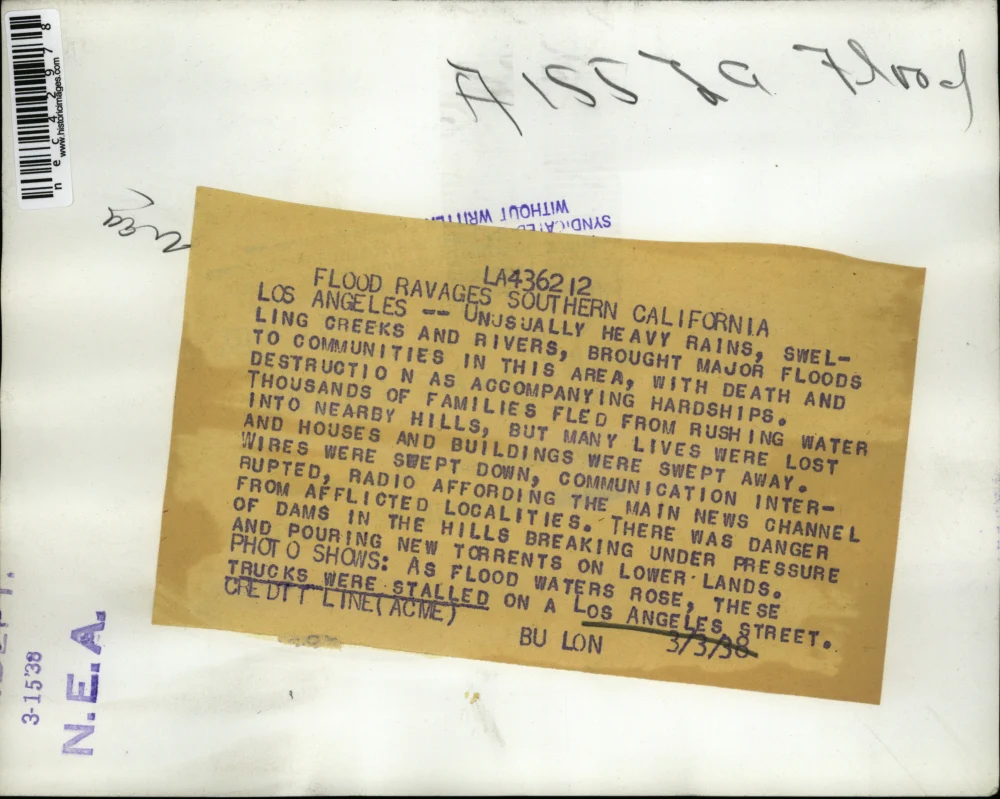 A 155 Flood
nec42978
www.historicimages.com
nea
SYNDICATED
WITHOUT WRITTEN
LA436212
FLOOD RAVAGES SOUTHERN CALIFORNIA
LOS ANGELES -- UNUSUALLY HEAVY RAINS, SWEL-
LING CREEKS AND RIVERS, BROUGHT MAJOR FLOODS
TO COMMUNITIES IN THIS AREA, WITH DEATH AND
DESTRUCTIO N AS ACCOMPANYING HARDSHIPS.
THOUSANDS OF FAMILIES FLED FROM RUSHING WATER
INTO NEARBY HILLS, BUT MANY LIVES WERE LOST
AND HOUSES AND BUILDINGS WERE SWEPT AWAY.
WIRES WERE SWEPT DOWN, COMMUNICATION INTER-
RUPTED, RADIO AFFORDING THE MAIN NEWS CHANNEL
FROM AFFLICTED LOCALITIES. THERE WAS DANGER
OF DAMS IN THE HILLS BREAKING UNDER PRESSURE
AND POURING NEW TORRENTS ON LOWER LANDS.
PHOTO SHOWS: AS FLOOD WATERS ROSE, THESE
TRUCKS WERE STALLED ON A LOS ANGELES STREET.
CREDIT LINE(ACME) BU LON 3/3/38
3-15'38
N.E.A.